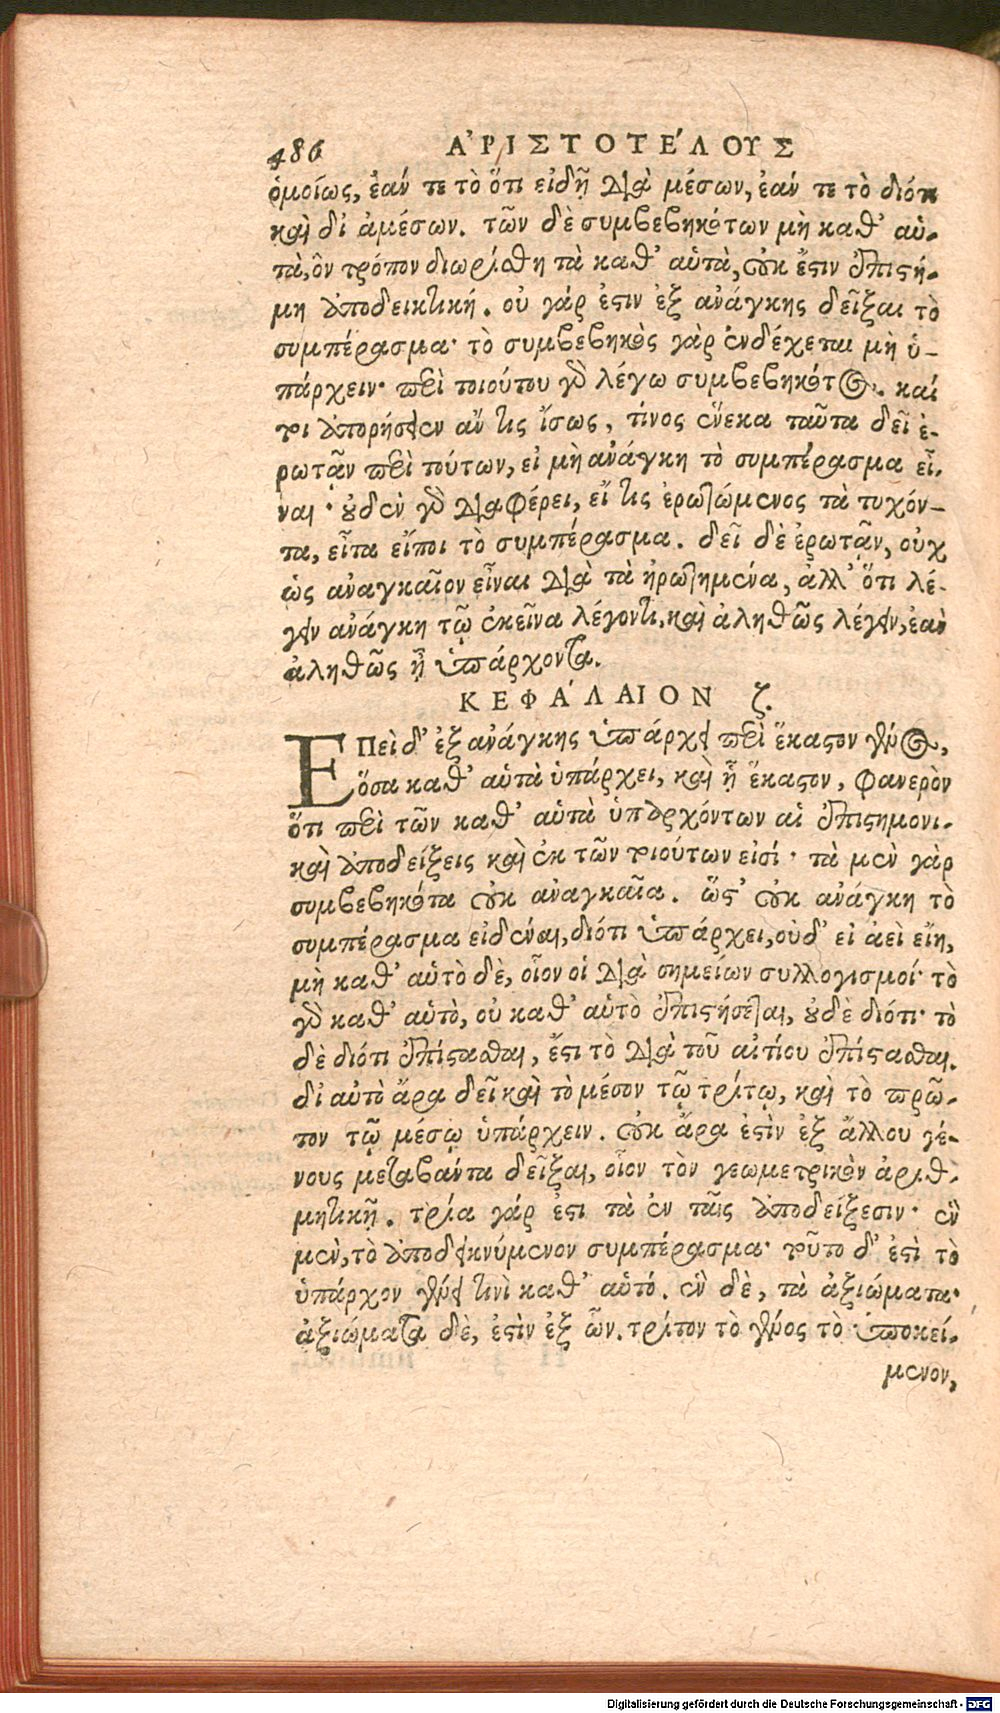 486 ἈΡΙΣΤΟΤΈΛΟΥΣ
ὁμοίως, ἐάν τε τὸ ὅτι εἰδῇ διὰ μέσων, ἐάν τε τὸ διότι
καὶ δι' ἀμέσων. τῶν δὲ συμβεβηκότων μὴ καθ' αὑ-
τὰ, ὃν τρόπον διωρίσθη τὰ καθ' αὑτὰ, οὐκ ἔστιν ἐπιστή-
μη ἀποδεικτική. οὐ γάρ ἐστιν ἐξ ἀνάγκης δεῖξαι τὸ
συμπέρασμα· τὸ συμβεβηκὸς γὰρ ἐνδέχεται μὴ ὑ-
πάρχειν· περὶ τοιούτου γὰρ λέγω συμβεβηκότος. καί
τοι ἀπορήσειεν ἄν τις ἴσως, τίνος ἕνεκα ταῦτα δεῖ ἐ-
ρωτᾷν περὶ τούτων, εἰ μὴ ἀνάγκη τὸ συμπέρασμα εἶ-
ναι· οὐδὲν γὰρ διαφέρει, εἴ τις ἐρωτώμενος τὰ τυχόν-
τα, εἶτα εἴποι τὸ συμπέρασμα. δεῖ δὲ ἐρωτᾷν, οὐχ
ὡς ἀναγκαῖον εἶναι διὰ τὰ ἠρωτημένα, ἀλλ' ὅτι λέ-
γειν ἀνάγκη τῷ ἐκεῖνα λέγοντι, καὶ ἀληθῶς λέγειν, ἐὰν
ἀληθῶς ᾖ ὑπάρχοντα.
ΚΕΦΆΛΑΙΟΝ ζ.
ΕΠεὶ δ' ἐξ ἀνάγκης ὑπάρχει περὶ ἕκαστον γένος,
ὅσα καθ' αὑτὰ ὑπάρχει, καὶ ᾗ ἕκαστον, φανερὸν
ὅτι περὶ τῶν καθ' αὑτὰ ὑπαρχόντων αἱ ἐπιστημονι-
καὶ ἀποδείξεις καὶ ἐκ τῶν τοιούτων εἰσί· τὰ μὲν γὰρ
συμβεβηκότα οὐκ ἀναγκαῖα. ὥστ' οὐκ ἀνάγκη τὸ
συμπέρασμα εἰδέναι, διότι ὑπάρχει, οὐδ' εἰ ἀεὶ εἴη,
μὴ καθ' αὑτὸ δὲ, οἷον οἱ διὰ σημείων συλλογισμοί· τὸ
γὰρ καθ' αὑτὸ, οὐ καθ' αὑτὸ ἐπιστήσεται, οὐδὲ διότι· τὸ
δὲ διότι ἐπίστασθαι, ἔστι τὸ διὰ τοῦ αἰτίου ἐπίστασθαι.
δι' αὑτὸ ἄρα δεῖ καὶ τὸ μέσον τῷ τρίτῳ, καὶ τὸ πρῶ-
τον τῷ μέσῳ ὑπάρχειν. οὐκ ἄρα ἐστὶν ἐξ ἄλλου γέ-
νους μεταβάντα δεῖξαι, οἷον τὸν γεωμετρικὸν ἀριθ-
μητικῇ. τρία γάρ ἐστι τὰ ἐν ταῖς ἀποδείξεσιν· ἓν
μὲν, τὸ ἀποδεικνύμενον συμπέρασμα· τοῦτο δ' ἐστὶ τὸ
ὑπάρχον γένει τινὶ καθ' αὑτό. ἓν δὲ, τὰ ἀξιώματα·
ἀξιώματα δὲ, ἐστὶν ἐξ ὧν. τρίτον τὸ γένος τὸ ὑποκεί-
μενον,
Digitalisierung gefördert durch die Deutsche Forschungsgemeinschaft - DFG